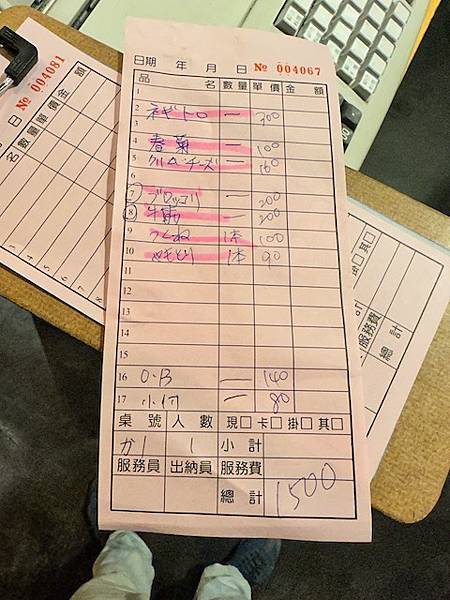 日期 年 月 日 № 004067
品 名 數量 單價 金 額
1
2 ネギトロ 一 300
3
4 春菊 一 100
5 クリームチーズ 一 160
6
7 ブロッコリ 一 200
8 牛すじ 一 200
9 つくね 1本 100
10 1本 90
11
12
13
14
15
16 O.B 一 140
17 一 80
桌 號 人 數 現□ 卡□ 掛□ 其□
カ1 1 小 計
服務員 出納員 服務費
總 計 1500
№ 004081
日
名 數量 單價 金 額
3
4
5
6
7
8
掛□ 其□
計
服務費
總 計